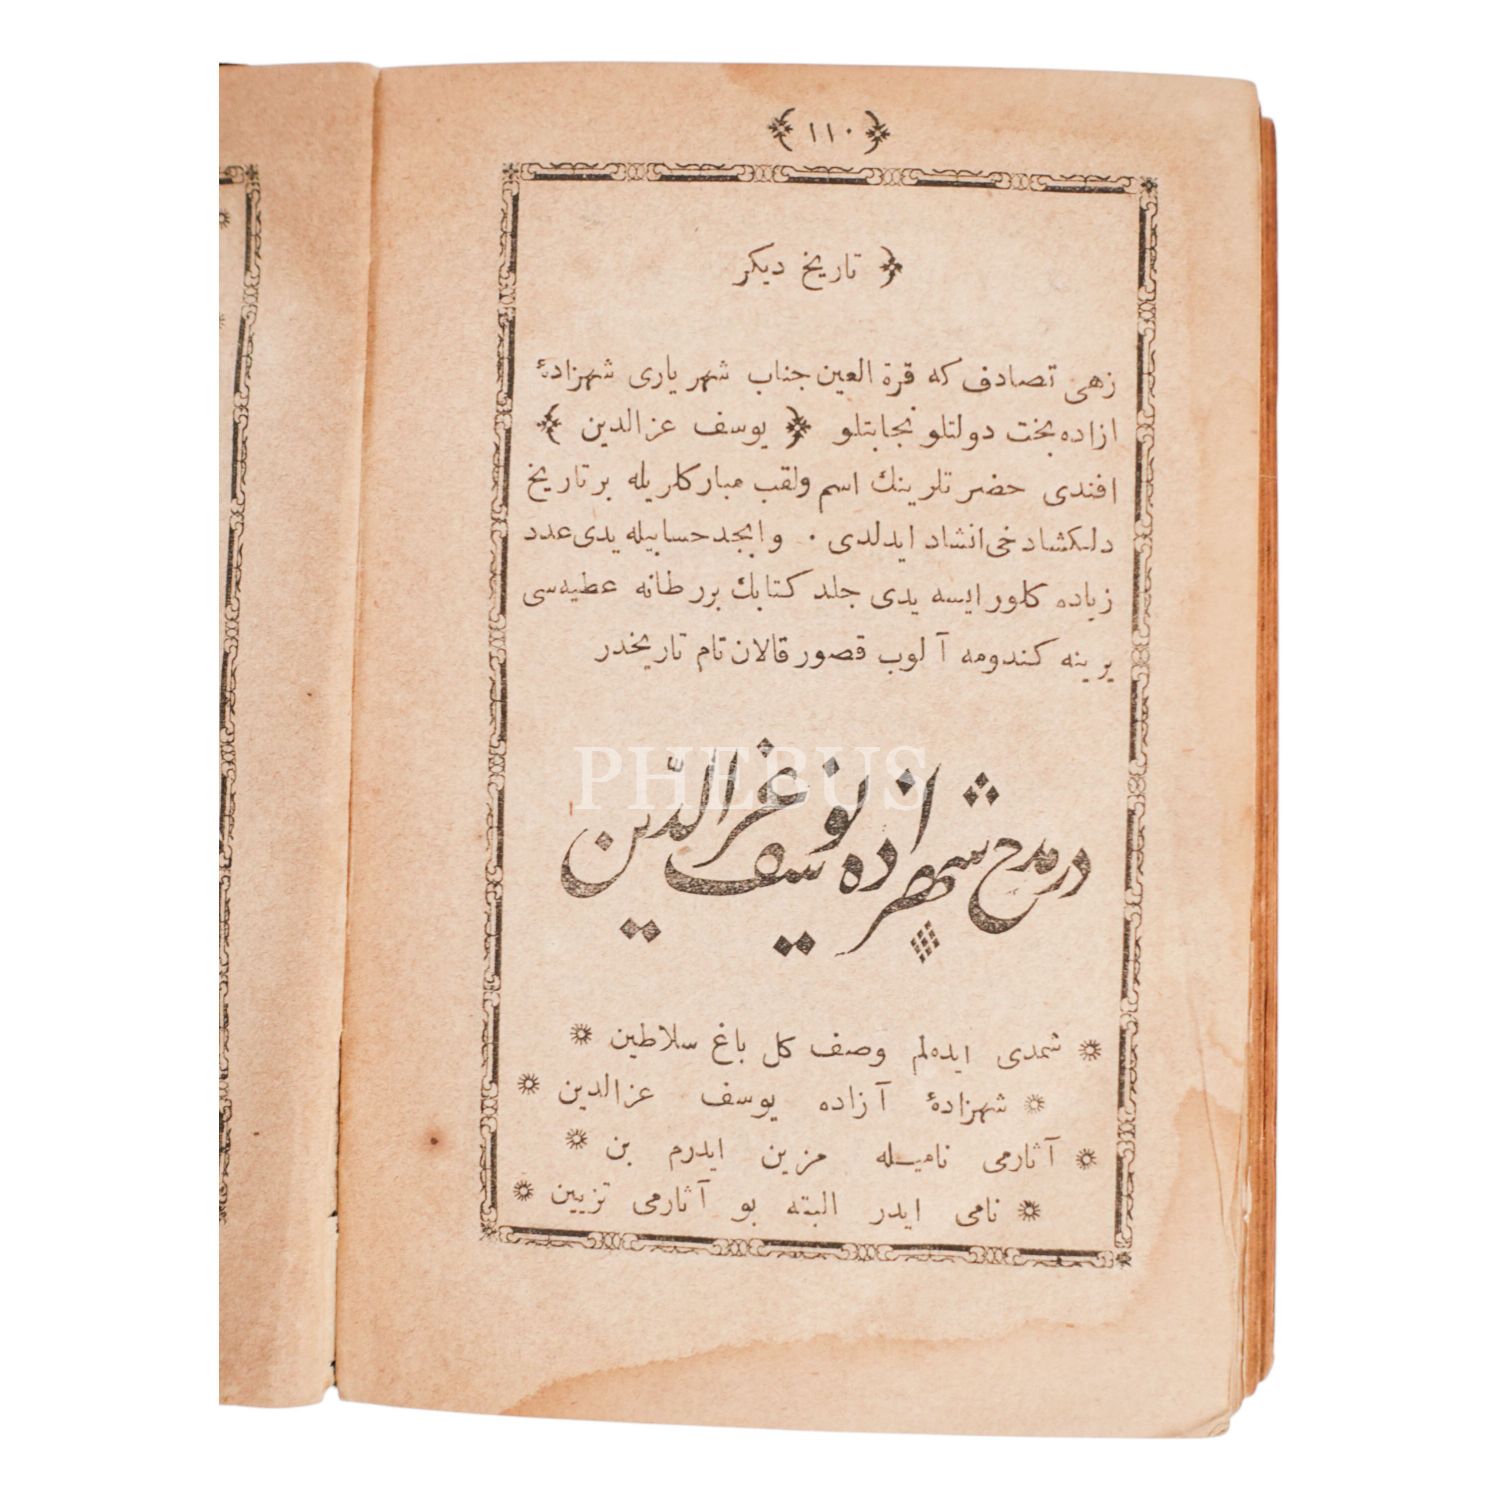 ﴿ ١١٠ ﴾
﴿ تاریخ دیکر
زهی تصادف که قرة العین جناب شهریاری شهزادهٔ
ازاده بخت دولتلو نجابتلو ﴿ یوسف عزالدین ﴾
افندی حضرتلرینك اسم ولقب مبارکلریله بر تاریخ
دلکشادخی انشاد ایدلدی . وابجد حسابیله یدی عدد
زیاده کلور ایسه یدی جلد کتابك بررطانه عطیه‌سی
یرینه کندومه آلوب قصور قالان تام تاریخدر
PHEBUS
در مدح شهزاده یوسف عزالدین
* شمدی ایده‌لم وصف کل باغ سلاطین *
* شهزادهٔ آزاده یوسف عزالدین *
* آثارمی نامیله مزین ایدرم بن *
* نامی ایدر البته بو آثارمی تزیین *